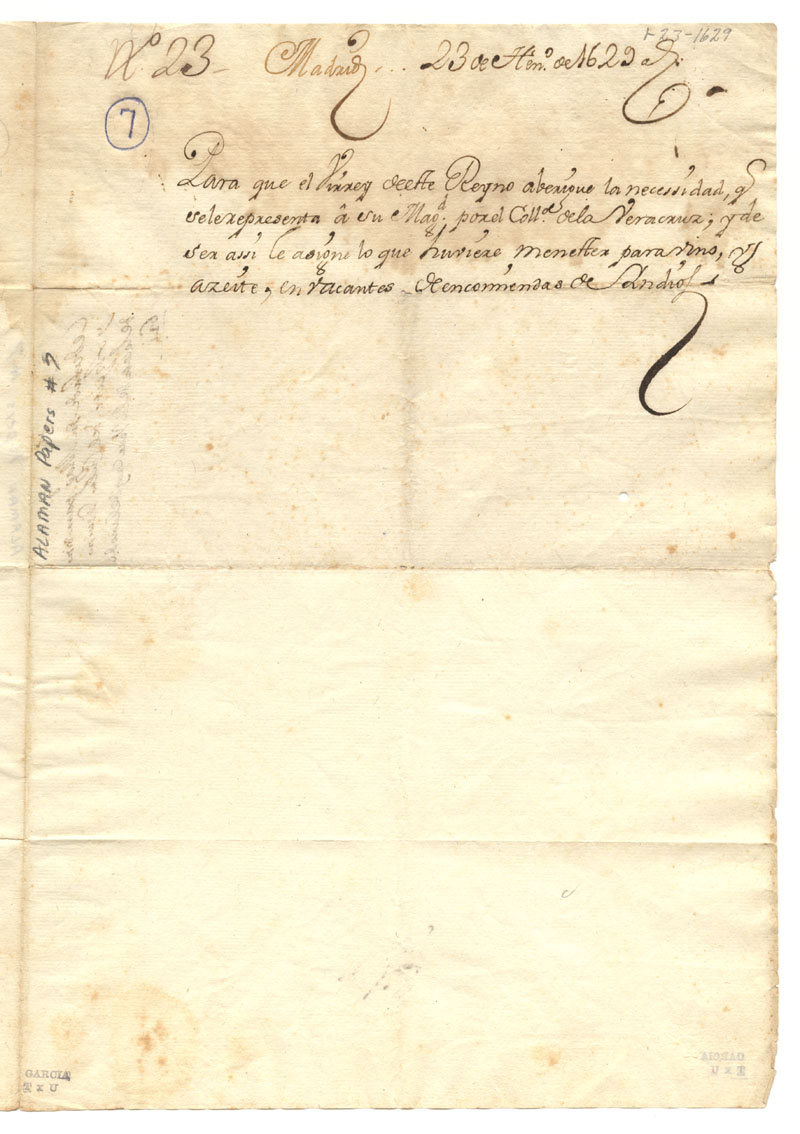 F 23-1629
Nº 23 Madrid 23 de Henº de 1629 as
7
Para que el Virrey deeste Reyno aberigue la necessidad, q
sele representa â su Magd. por el Collº dela Veracruz; y de
ser assi le asigne lo que huviere menester para vino, y
azeite, en vacantes de encomiendas de Yndios
ALAMAN Papers # 9
GARCIA
T x U
GARCIA
T x U